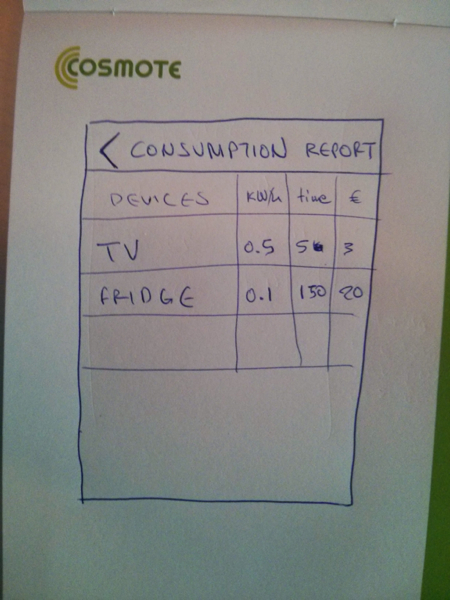 COSMOTE
< CONSUMPTION REPORT
DEVICES KW/h time €
TV 0.5 5 3
FRIDGE 0.1 150 20